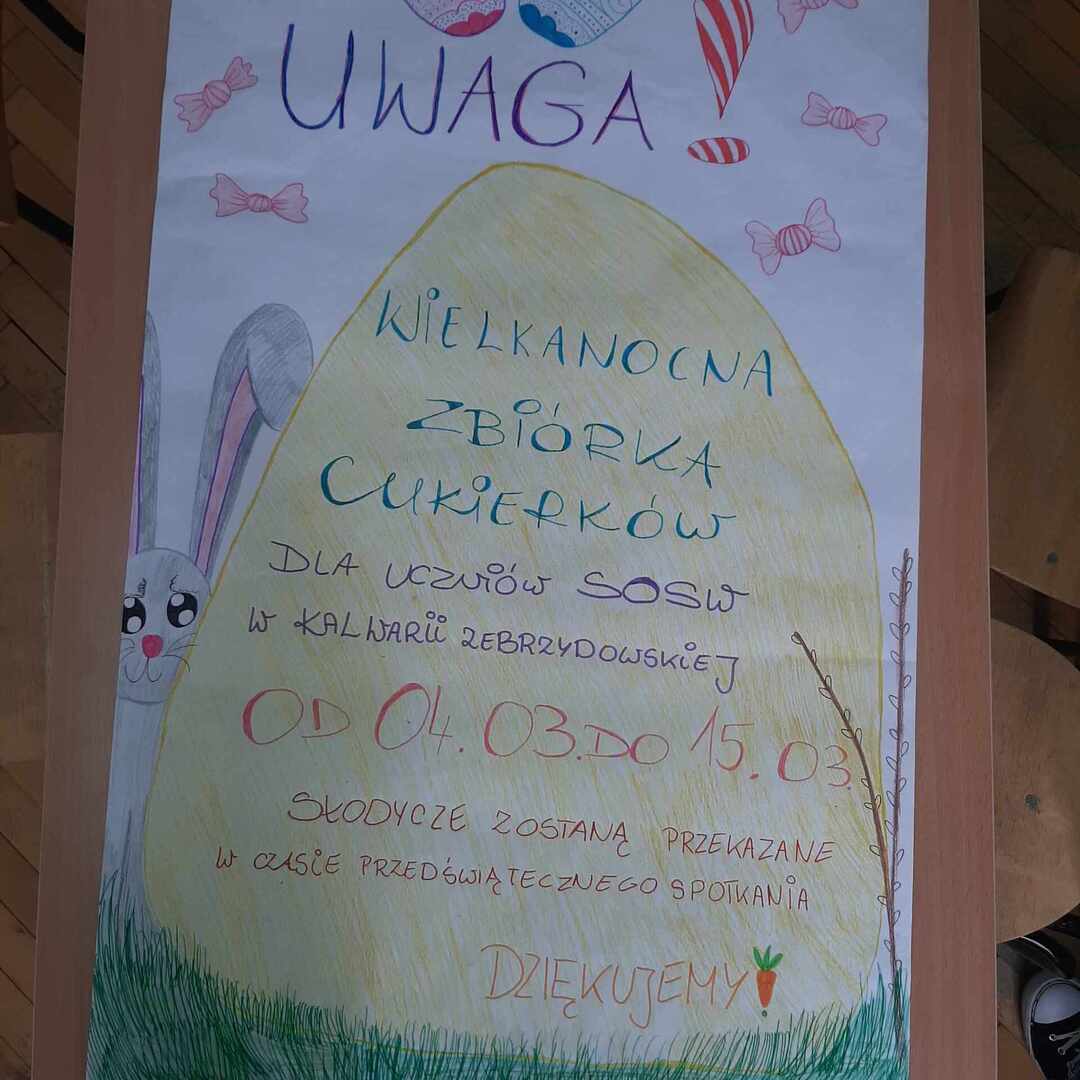 UWAGA!
WIELKANOCNA
ZBIÓRKA
CUKIERKÓW
DLA UCZNIÓW SOSW
W KALWARII ZEBRZYDOWSKIEJ
OD 04.03. DO 15.03.
SŁODYCZE ZOSTANĄ PRZEKAZANE
W CZASIE PRZEDŚWIĄTECZNEGO SPOTKANIA
DZIĘKUJEMY!